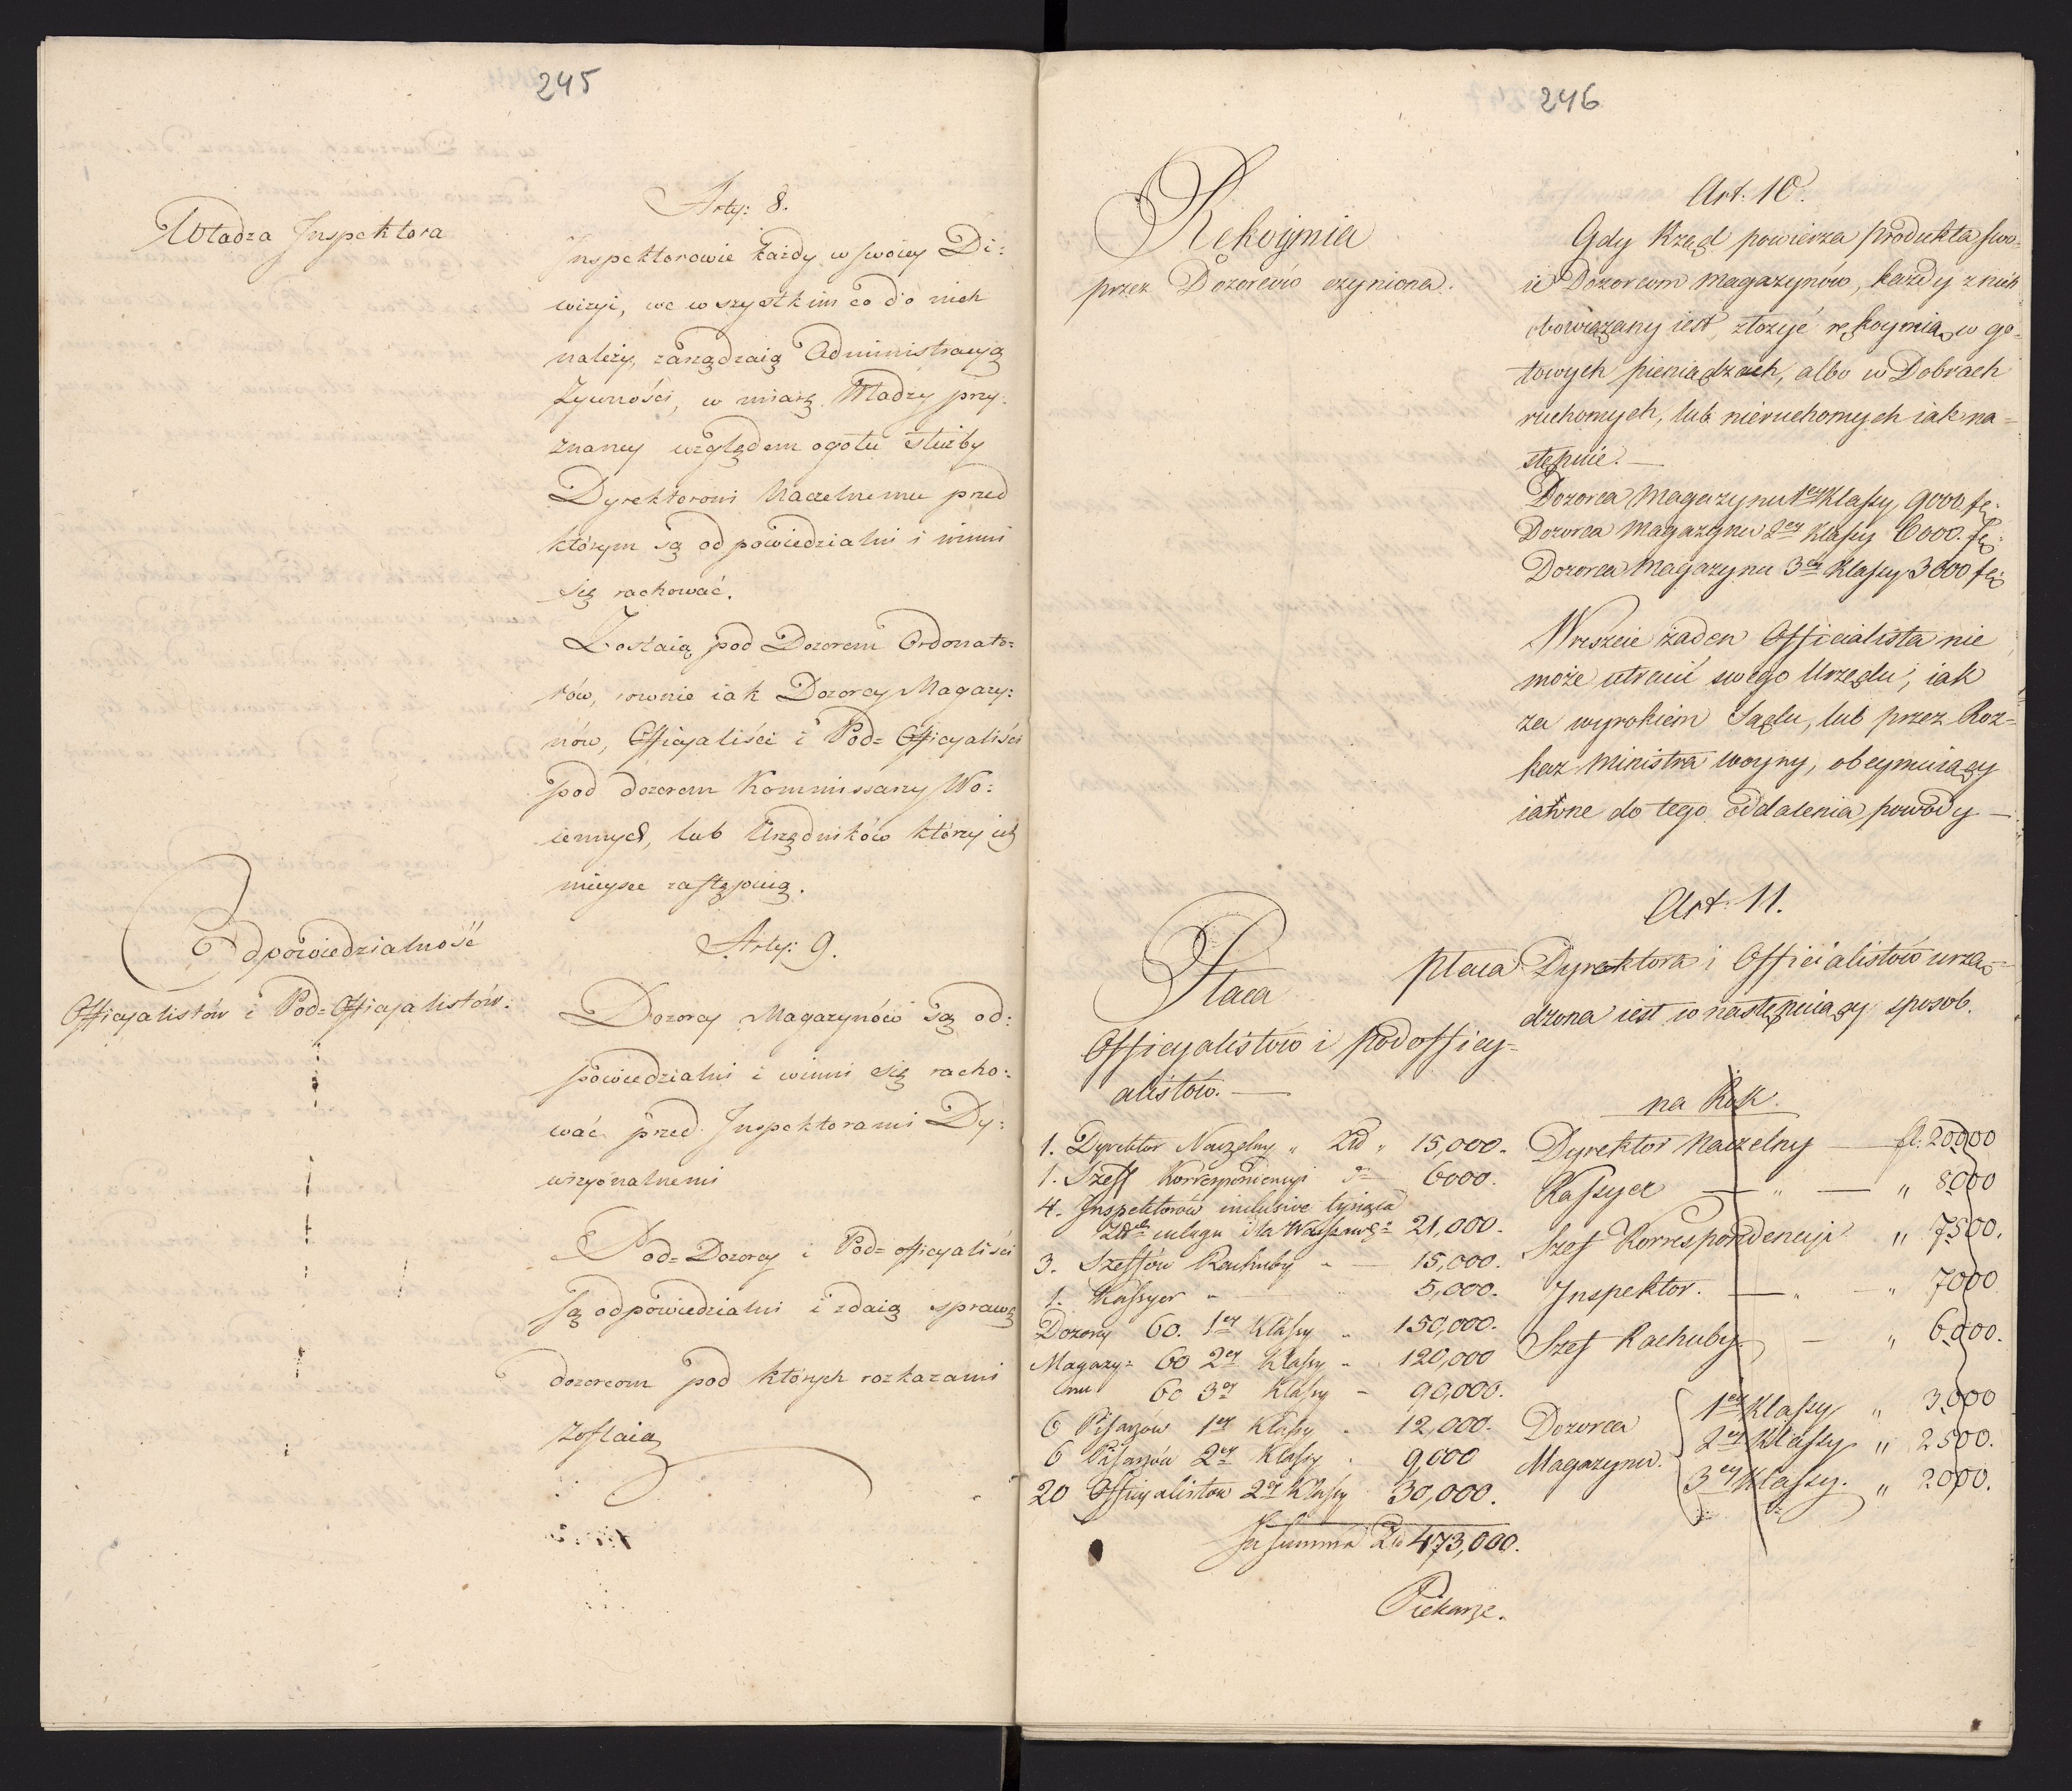 245
Władza Inspektora
Arty: 8.
Inspektorowie każdy w swoiey Di:
wizyi, we wszystkim co do nich
należy, zarządzaią Administracyą
Żywności, w miarę Władzy przy:
znaney względem ogołu służby
Dyrektorowi Naczelnemu przed
którym są odpowiedzialni i winni
się rachować.
Zostaią pod Dozorem Ordonato=
rów, rownie iak Dozorcy Magazy:
nów, Officyaliści i Pod=Officyaliści
pod dozorem Kommissarzy Wo:
iennych, lub Urzędników którzy ich
mieysce zastępuią.
Odpowiedzialność
Officyalistów i Pod=Officyalistów.
Arty: 9.
Dozorcy Magazynów są od:
powiedzialni i winni się racho:
wać przed Inspektorami Dy:
wizyonalnemi
Pod=Dozorcy i Pod=officyaliści
są odpowiedzialni i zdaią sprawę
dozorcom pod których rozkazami
zostaią
246
Rękoymia
przez Dozorców czyniona.
Art. 10.
Gdy Rząd powierza produkta swo=
ie Dozorcom Magazynów, każdy z nich
obowiązany iest, złożyć rękoymią w go=
towych pieniądzach, albo w Dobrach
ruchomych, lub nieruchomych iak na=
stępuie. —
Dozorca Magazynu 1ey Klassy 9000 fl:
Dozorca Magazynu 2ey Klassy 6000. fl:
Dozorca Magazynu 3ey Klassy 3000 fl:
Wreszcie żaden Officialista nie
może utracić swego Urzędu, iak
za wyrokiem Sądu, lub przez Roz=
kaz Ministra Woyny, obeymuiący
iawne do tego oddalenia powody —
Płaca
Officyalistów i podofficy=
alistów. —
Art: 11.
Płaca Dyrektora i Officialistów urzą=
dzona iest w następuiący sposob.
1. Dyrektor Naczelny " Złd " 15,000.
1. Szeff Korrespondencyi do 6000.
4. Inspektorów inclusive tysiąca
Złch dla Warszawy 21,000.
3. Szeffów Rachuby " — 15,000.
1. Kassyer " 5,000.
Dozorcy 60. 1ey Klassy " 150,000.
Magazy= 60 2ey Klassy " 120,000
nu 60 3ey Klassy — 90,000.
6 Pisarzów 1ey Klassy " 12,000.
6 Pisarzów 2ey Klassy " 9,000
20 Officyalistow 2ey Klassy 30,000.
In Summa Zło 473,000.
Piekarze.
na Rok.
Dyrektor Naczelny — fl: 20000
Kassyer — " — " 8000
Szef Korrespondencyi " 7500.
Inspektor. — " — " 7000
Szef Rachuby — " 6000.
Dozorca
Magazynu.
1ey Klassy " 3000
2ey Klassy " 2500.
3ey Klassy. " 2000.